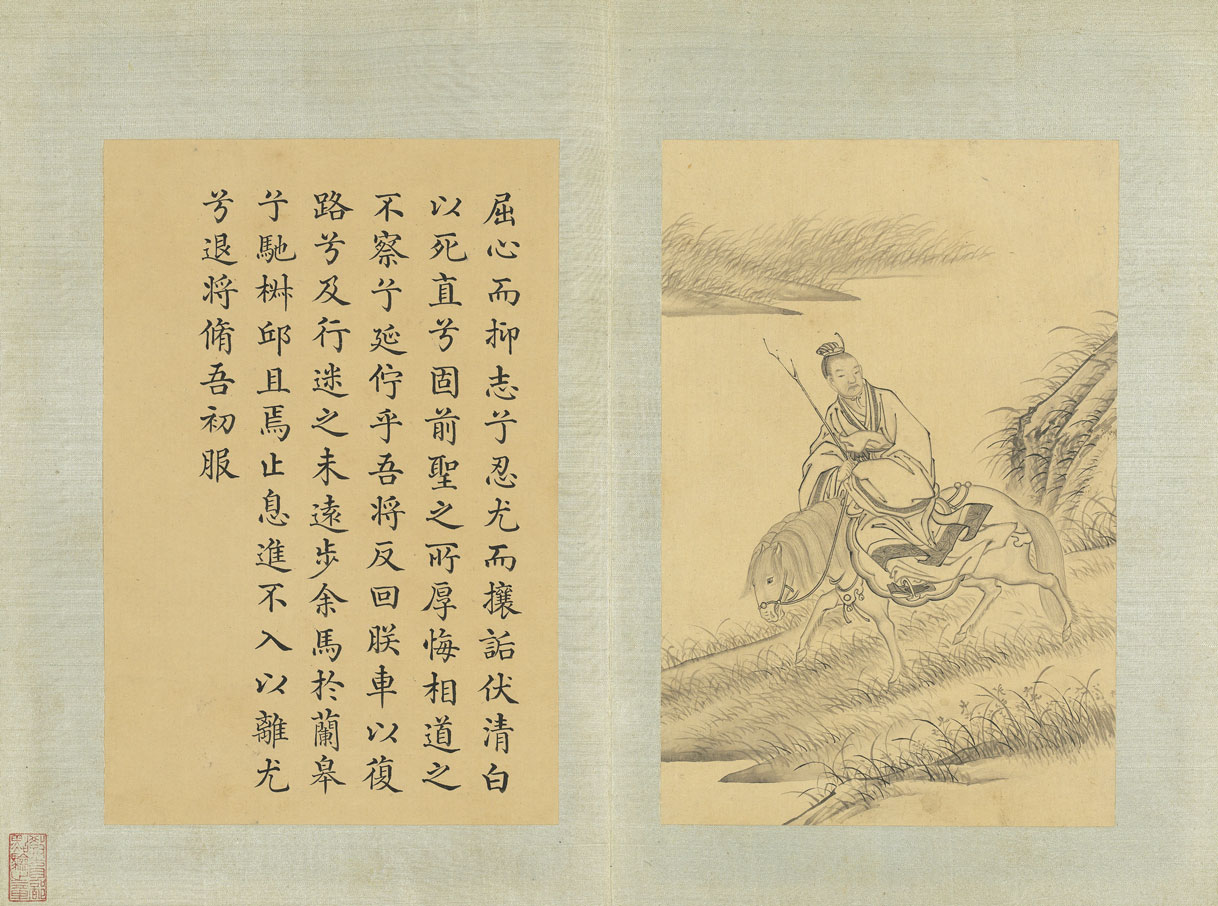 屈心而抑志兮忍尤而攘詬伏清白
以死直兮固前聖之所厚悔相道之
不察兮延佇乎吾將反回朕車以復
路兮及行迷之未遠步余馬於蘭皋
兮馳椒邱且焉止息進不入以離尤
兮退將脩吾初服
教育部
點驗之章